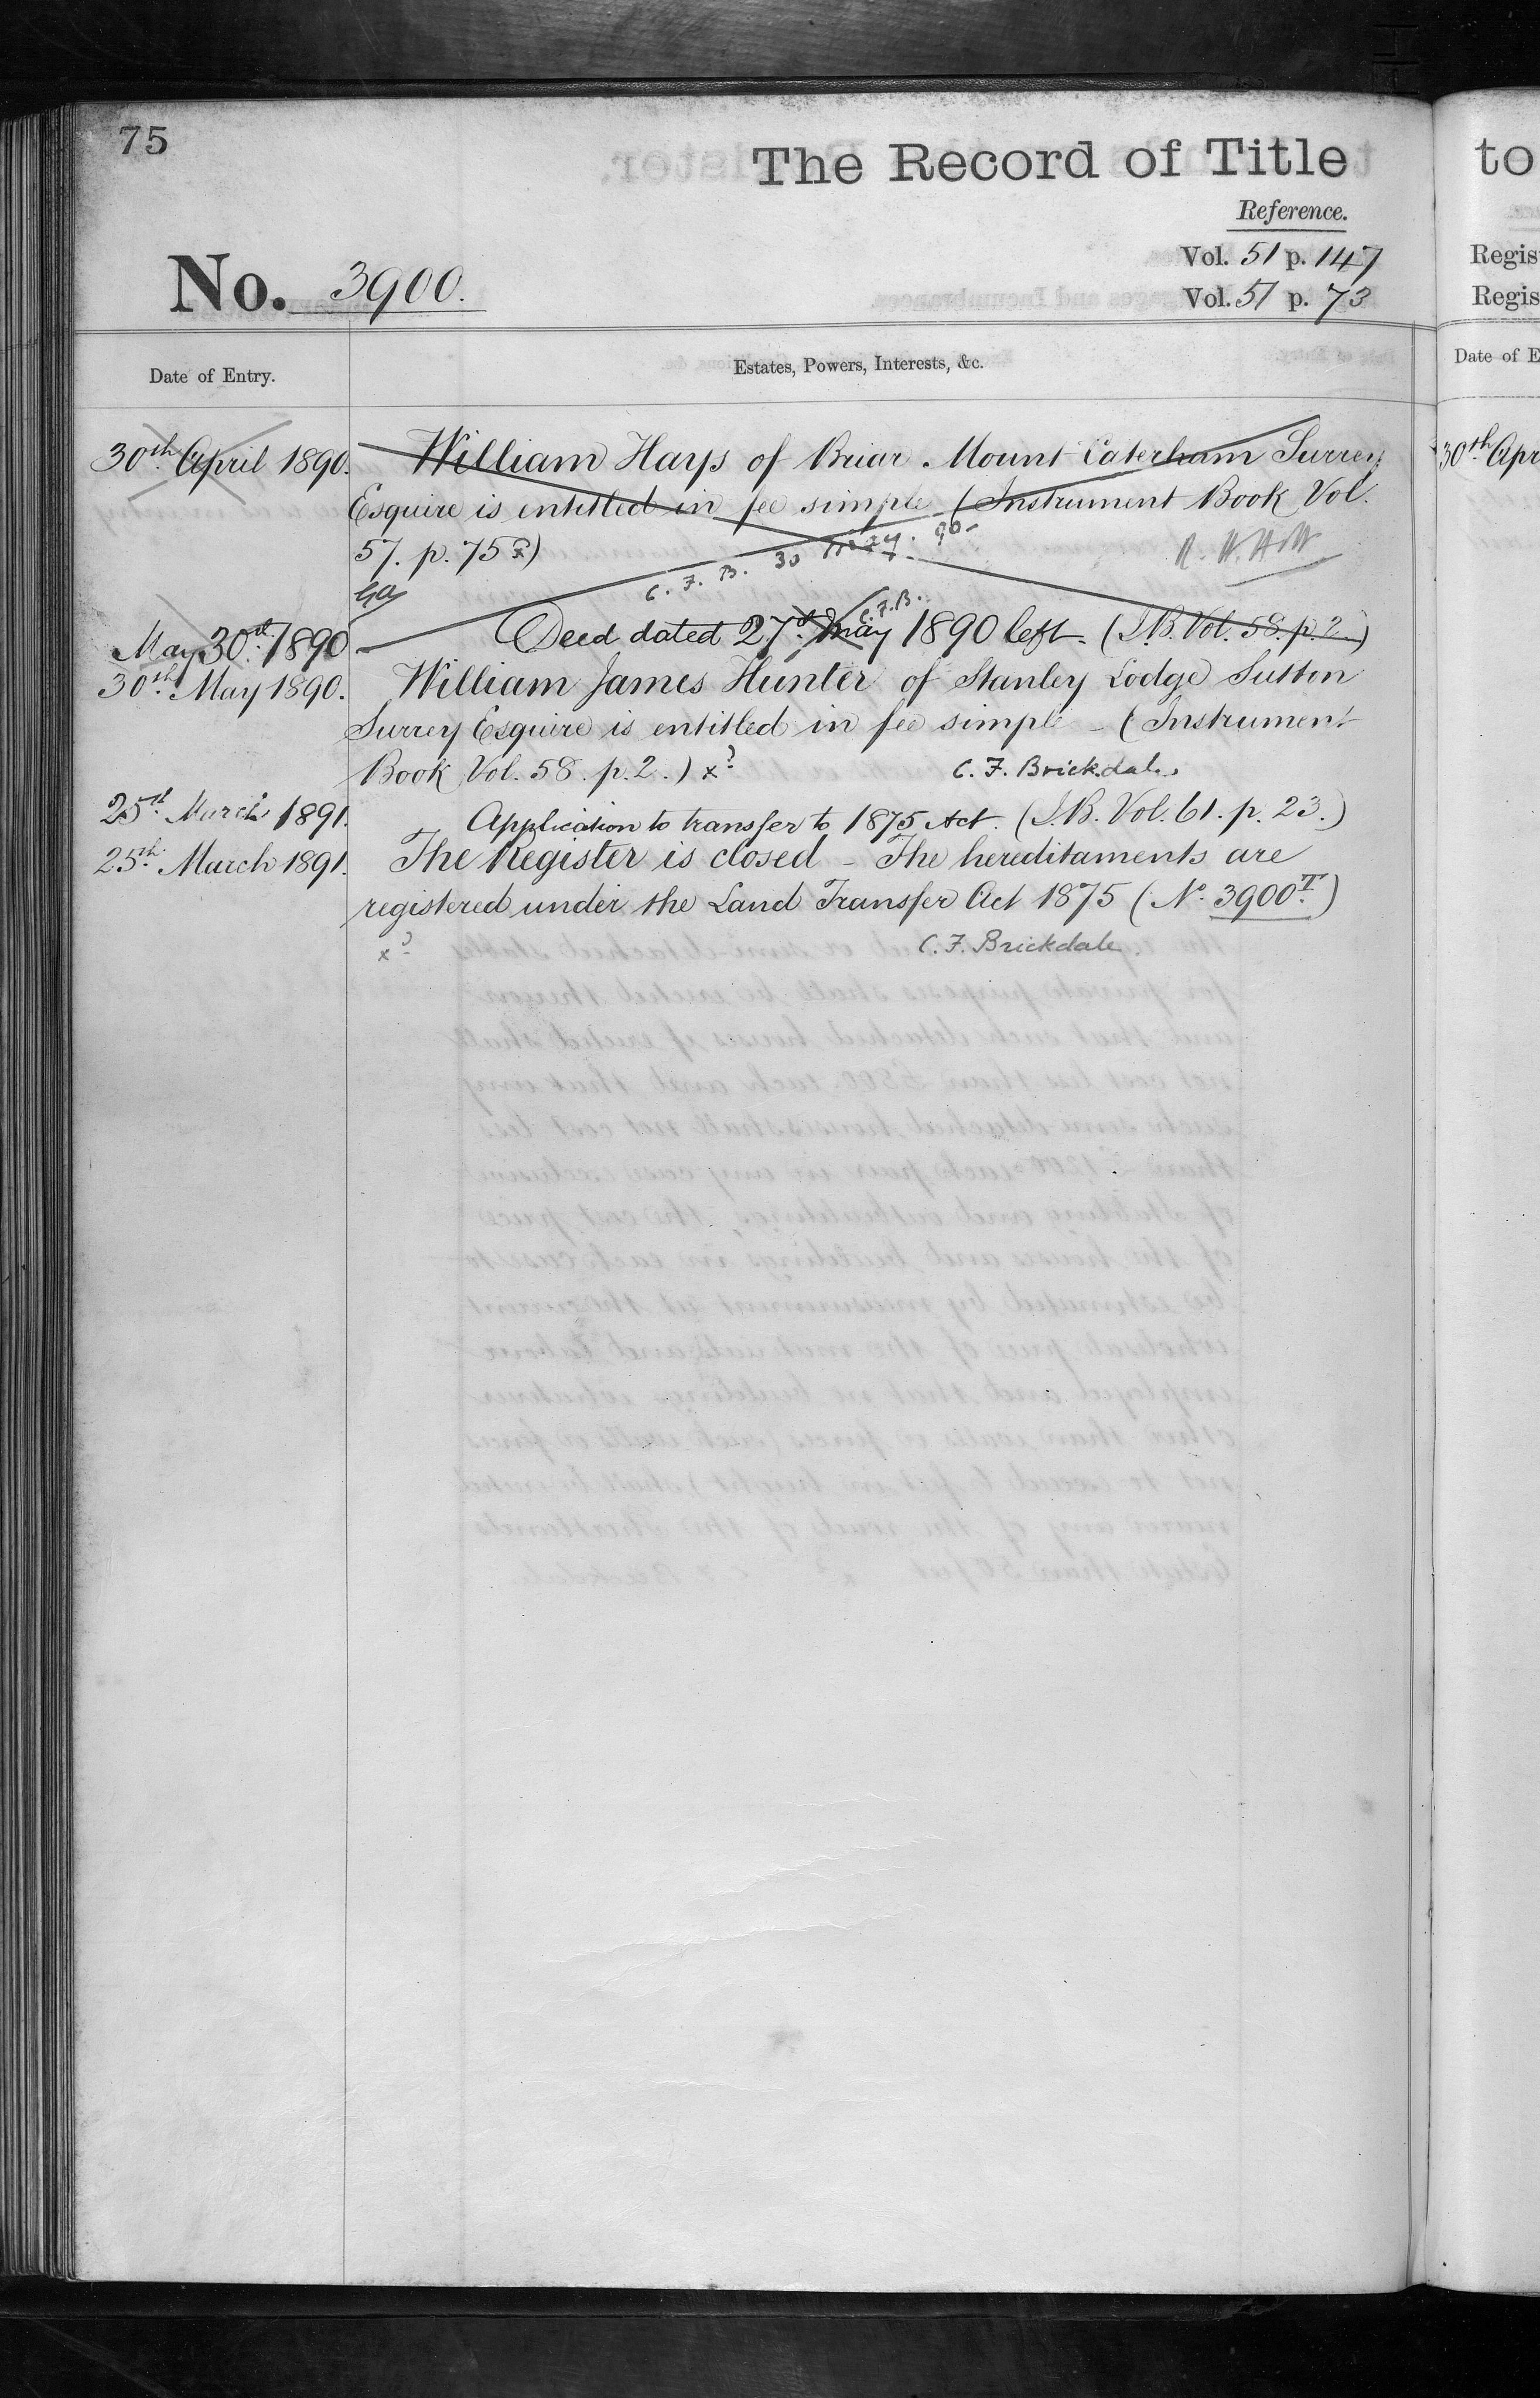 75
The Record of Title
Reference.
Vol. 51 p. 147
Vol. 51 p. 73
No. 3900.
Date of Entry.
Estates, Powers, Interests, &c.
30th April 1890. William Hays of Briar Mount Caterham Surrey
Esquire is entitled in fee simple (Instrument Book Vol.
57. p. 75)
C. F. B. 30 May. 90
C.F.B.
May 30th 1890 Deed dated 27th May 1890 left. (I.B. Vol. 58. p. 2)
30th May 1890. William James Hunter of Stanley Lodge Sutton
Surrey Esquire is entitled in fee simple - (Instrument
Book Vol. 58. p. 2.) x? C. F. Brickdale.
25th March 1891. Application to transfer to 1875 Act. (I.B. Vol. 61. p. 23.)
25th March 1891. The Register is closed - The hereditaments are
registered under the Land Transfer Act 1875 (No. 3900T.)
x? C. F. Brickdale
to
Regis
Regis
Date of E
30th Apr